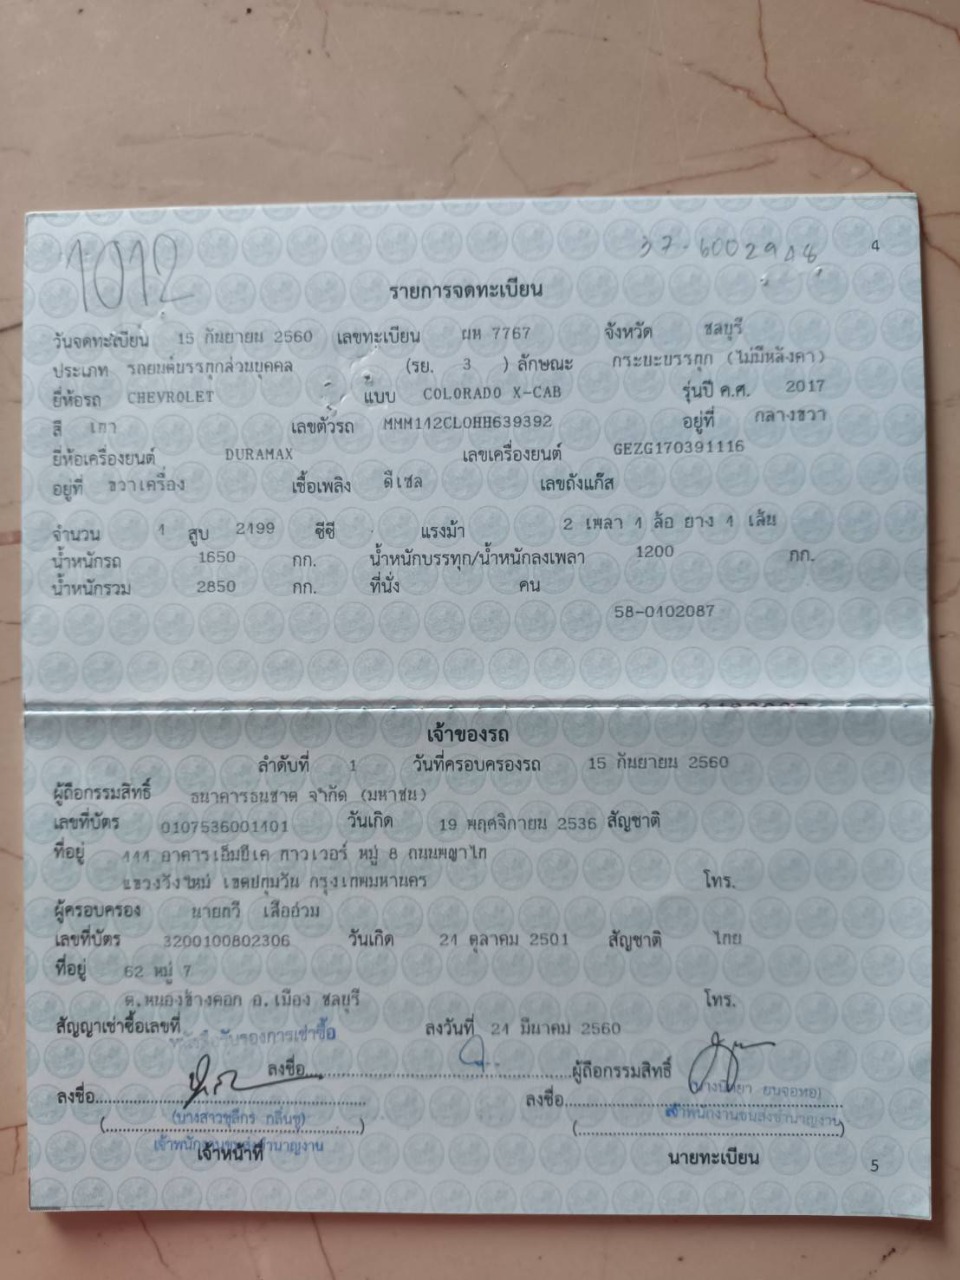 1012
37-6002948
4
รายการจดทะเบียน
วันจดทะเบียน 15 กันยายน 2560 เลขทะเบียน ผห 7767 จังหวัด ชลบุรี
ประเภท รถยนต์บรรทุกส่วนบุคคล (รย. 3 ) ลักษณะ กระบะบรรทุก (ไม่มีหลังคา)
ยี่ห้อรถ CHEVROLET แบบ COLORADO X-CAB รุ่นปี ค.ศ. 2017
สี เทา เลขตัวรถ MMM142CL0HH639392 อยู่ที่ กลางขวา
ยี่ห้อเครื่องยนต์ DURAMAX เลขเครื่องยนต์ GEZG170391116
อยู่ที่ ขวาเครื่อง เชื้อเพลิง ดีเซล เลขถังแก๊ส
จำนวน 4 สูบ 2499 ซีซี แรงม้า 2 เพลา 4 ล้อ ยาง 4 เส้น
น้ำหนักรถ 1650 กก. น้ำหนักบรรทุก/น้ำหนักลงเพลา 1200 กก.
น้ำหนักรวม 2850 กก. ที่นั่ง คน
58-0402087
เจ้าของรถ
ลำดับที่ 1 วันที่ครอบครองรถ 15 กันยายน 2560
ผู้ถือกรรมสิทธิ์ ธนาคารธนชาต จำกัด (มหาชน)
เลขที่บัตร 0107536001401 วันเกิด 19 พฤศจิกายน 2536 สัญชาติ
ที่อยู่ 444 อาคารเอ็มบีเค ทาวเวอร์ หมู่ 8 ถนนพญาไท
แขวงวังใหม่ เขตปทุมวัน กรุงเทพมหานคร โทร.
ผู้ครอบครอง นายทวี เสืออ่วม
เลขที่บัตร 3200100802306 วันเกิด 24 ตุลาคม 2501 สัญชาติ ไทย
ที่อยู่ 62 หมู่ 7
ต.หนองข้างคอก อ.เมือง ชลบุรี โทร.
สัญญาเช่าซื้อเลขที่ หนังสือรับรองการเช่าซื้อ ลงวันที่ 24 มีนาคม 2560
ลงชื่อ ผู้ถือกรรมสิทธิ์
ลงชื่อ ลงชื่อ
เจ้าพนักงานขนส่งชำนาญงาน
เจ้าพนักงานขนส่งชำนาญงาน
เจ้าหน้าที่ นายทะเบียน
5